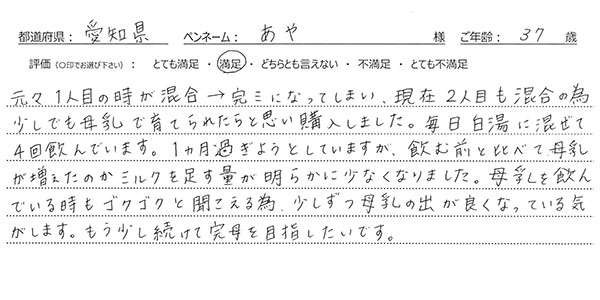 都道府県： 愛知県 ペンネーム： あや 様 ご年齢： 37 歳
評価（○印でお選び下さい）： とても満足 ・ 満足 ・ どちらとも言えない ・ 不満足 ・ とても不満足
元々1人目の時が混合→完ミになってしまい、現在2人目も混合の為
少しでも母乳で育てられたらと思い購入しました。毎日白湯に混ぜて
4回飲んでいます。1ヵ月過ぎようとしていますが、飲む前と比べて母乳
が増えたのかミルクを足す量が明らかに少なくなりました。母乳を飲ん
でいる時もゴクゴクと聞こえる為、少しずつ母乳の出が良くなっている気
がします。もう少し続けて完母を目指したいです。